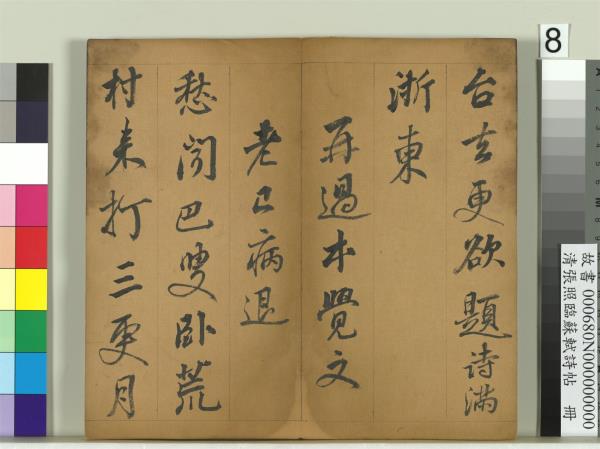 台去更欲題詩滿
浙東
再過本覺文
老已病退
愁聞巴叟臥荒
村来打三更月
8
故書000680N000000000
清張照臨蘇軾詩帖 冊